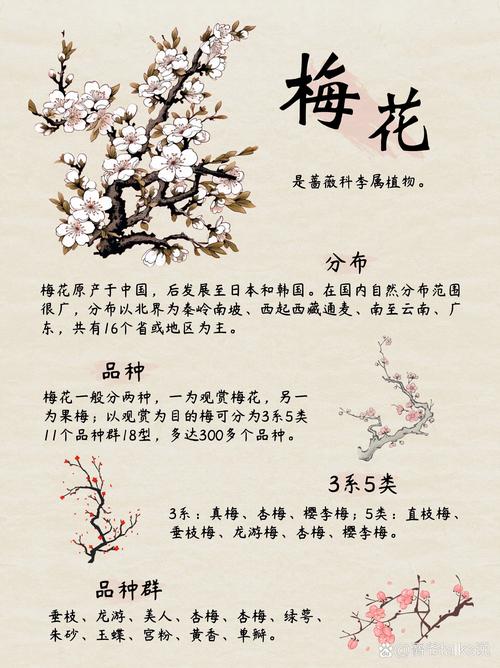 梅花
是蔷薇科李属植物。
分布
梅花原产于中国，后发展至日本和韩国。在国内自然分布范围
很广，分布以北界为秦岭南坡、西起西藏通麦、南至云南、广
东，共有16个省或地区为主。
品种
梅花一般分两种，一为观赏梅花，另一
为果梅；以观赏为目的梅可分为3系5类
11个品种群18型，多达300多个品种。
3系5类
3系：真梅、杏梅、樱李梅；5类：直枝梅、
垂枝梅、龙游梅、杏梅、樱李梅。
品种群
垂枝、龙游、美人、杏梅、杏梅、绿萼、
朱砂、玉蝶、宫粉、黄香、单瓣。